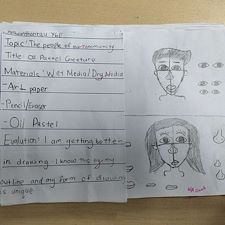 Topic: The people of our community
Title: Oil Pastel Creature
Materials: Wet Media/Dry Media
-Art paper
-Pencil/Eraser
-Oil Pastel
Evaluation: I am getting better
in drawing. I know this by my
outline and my form of drawing
is unique